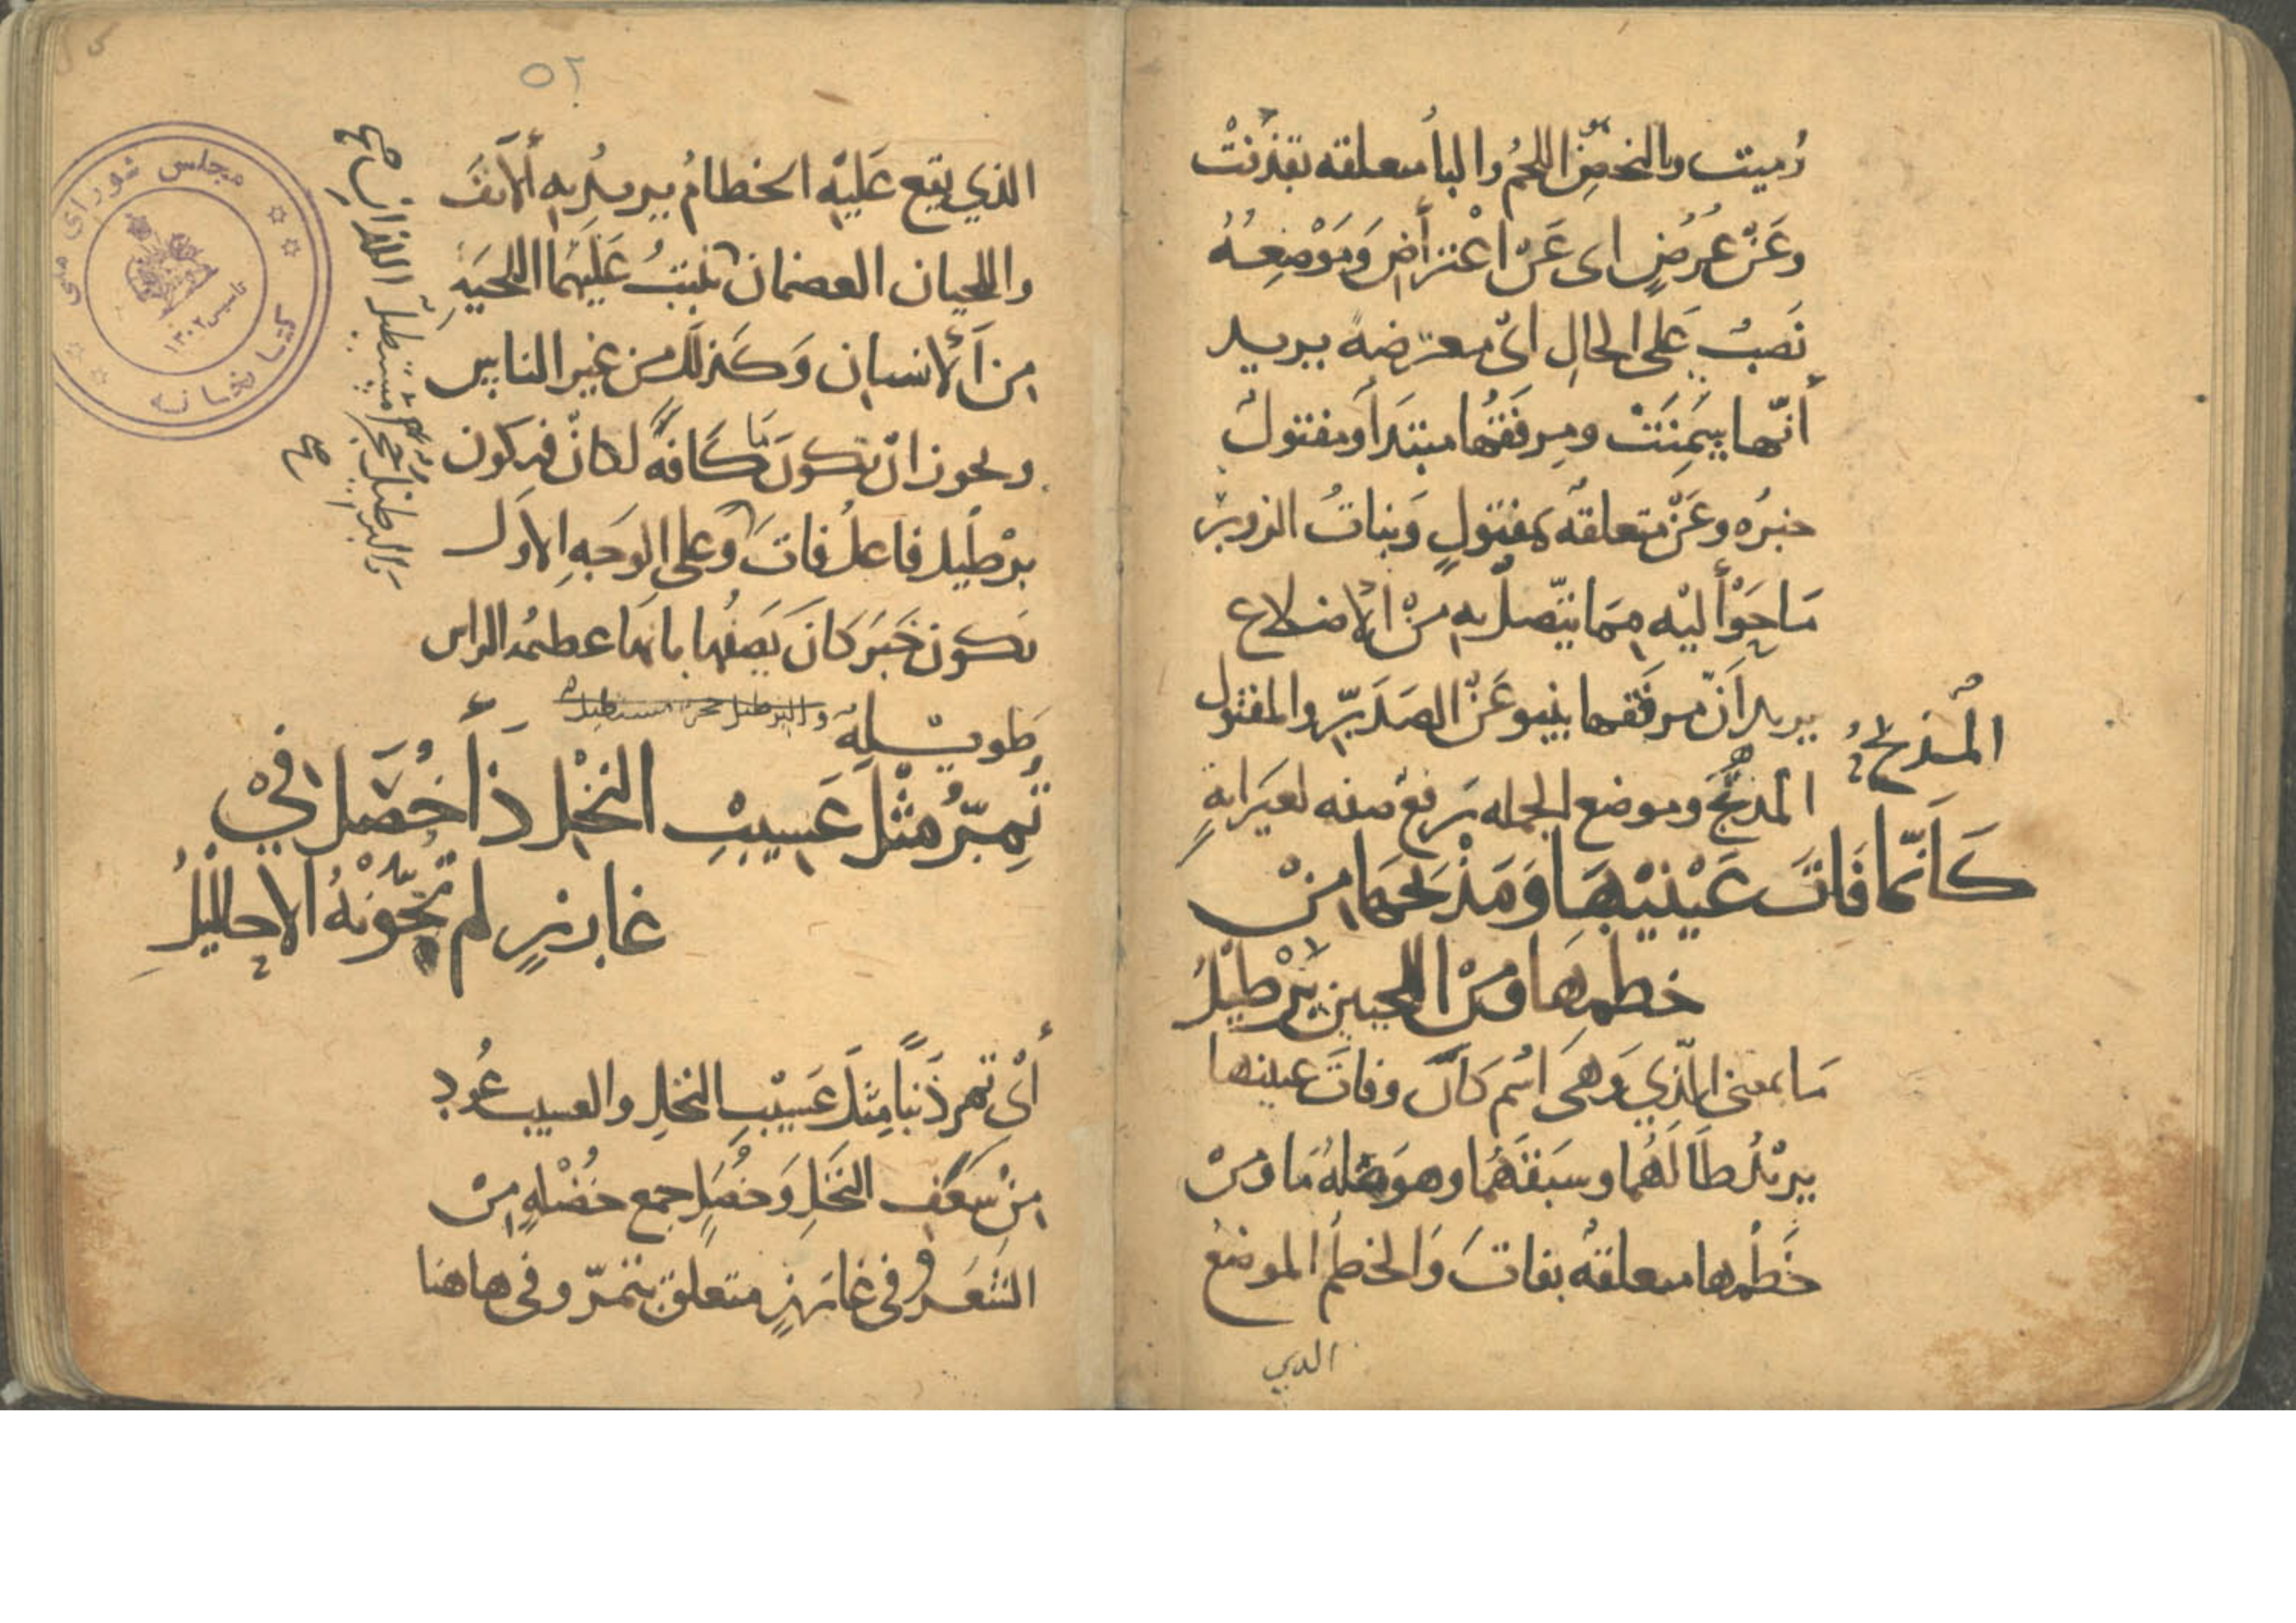 رُميت والنحض اللحمُ والبا متعلقه بقذفتْ
وعَنْ عُرُضٍ اى عَنْ اعْتراضٍ وَمَوْضِعُهُ
نَصبٌ عَلى الحالِ اىْ معترضة يريد
أنّها سَمِنَتْ ومِرفَقُها مبتدَأ ومفتول
خبرُه وعَنْ متعلقه بمفتولٍ وَبناتُ الزور
مَا حَوَالَيْه ممَا يتّصلُ به مِنْ الاضلاع
يريد اَنّ مرفقها ينبو عَنْ الصَدر والمفتول
المُدْمَجُ
المدمَجُ وموضع الجمله رفع صفه لعَيرَانةٍ
كَاَنّمَا فَاتَ عَيْنَيْهَا وَمَذْبَحَهَا مِنْ
خطمِهَا وَمِنْ اللحيين بِرْطيْلُ
مَا بمعنى الَّذِي وَهىَ اسْم كَأنَّ وفاتَ عينيها
يريْدُ طَالَهُما وسَبقَهُمَا وهوَ صلةُ مَا ومن
خَطْمها متعلقهُ بفاتَ وَالخطْم الموضعُ
الدي
٥٢
الذي يقع عَليْهِ الخطامُ يريدُ به الأنفَ
واللحيان العضمان تنبتُ عَلَيْهمَا اللحيَهُ
من الأنسان وَكَذلكَ من غير الناسِ
ويجوز انْ تكونَ مَا كَافةً لكانّ فيكون
برْطيل فاعلُ فاتَ وعلى الوَجهِ الاوَل
يكون خَبرَ كانَ يَصفُها بانها عظيمهُ الراس
طويْلةٌ والبرطيل حجر مستطيل
اللذانِ صح
والبرطيل حجر مستطيل
صح
تُمِرُّ مثْلَ عَسيبِ النخْلِ ذَا خُصَلٍ فيْ
غارزٍ لم تخَوّنْهُ الاحاليْلُ
أىْ تمر ذَنَباً مِثلَ عَسيْبِ النخلِ والعسيب عُود
مِنْ سَعَفِ النَخلِ وَخُصَلٍ جمع خُصْلهٍ مِنْ
الشَعَرِ وفى غارزٍ متعلق بتمرّ وفى هاهنا
كتابخانه مجلس شوراى ملى
تأسيس ١٣٠٢